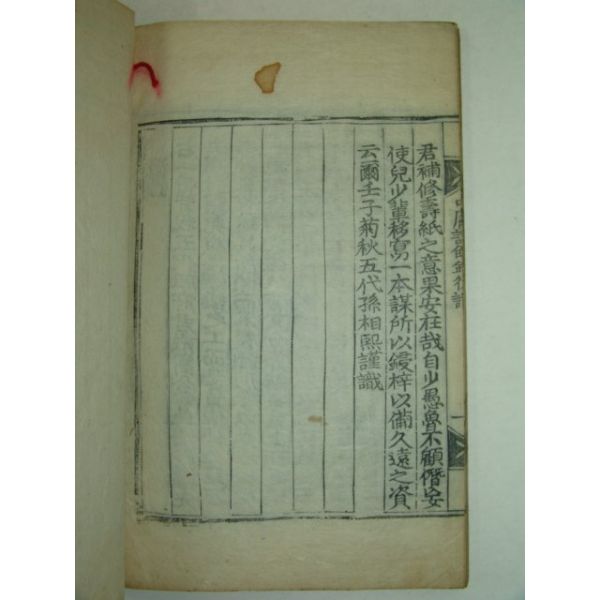 君補修壽紙之意果安在哉自少愚魯不顧僭妄
使兒少輩移寫一本謀所以鋟梓以備久遠之資
云爾壬子菊秋五代孫相熙謹識